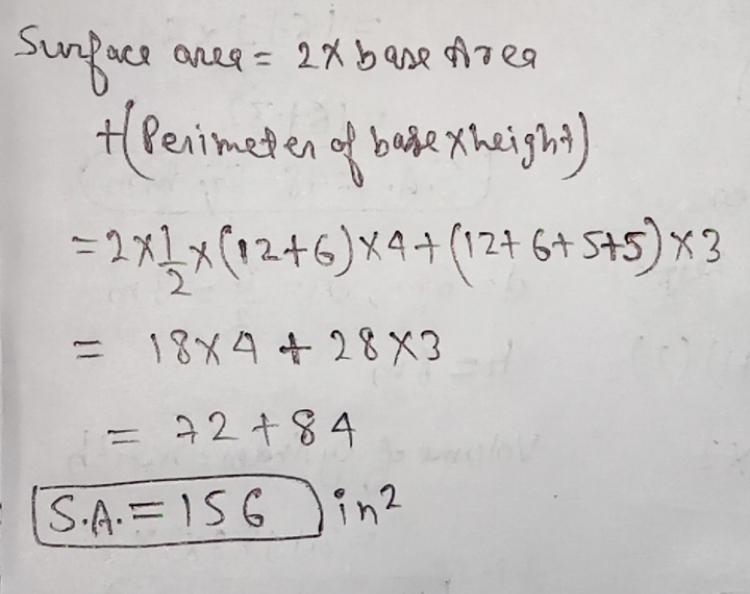 Surface area = 2 x base Area
+(Perimeter of base x height)
= 2 x 1/2 x (12+6) x 4 + (12+6+5+5) x 3
= 18 x 4 + 28 x 3
= 72 + 84
S.A. = 156 in²